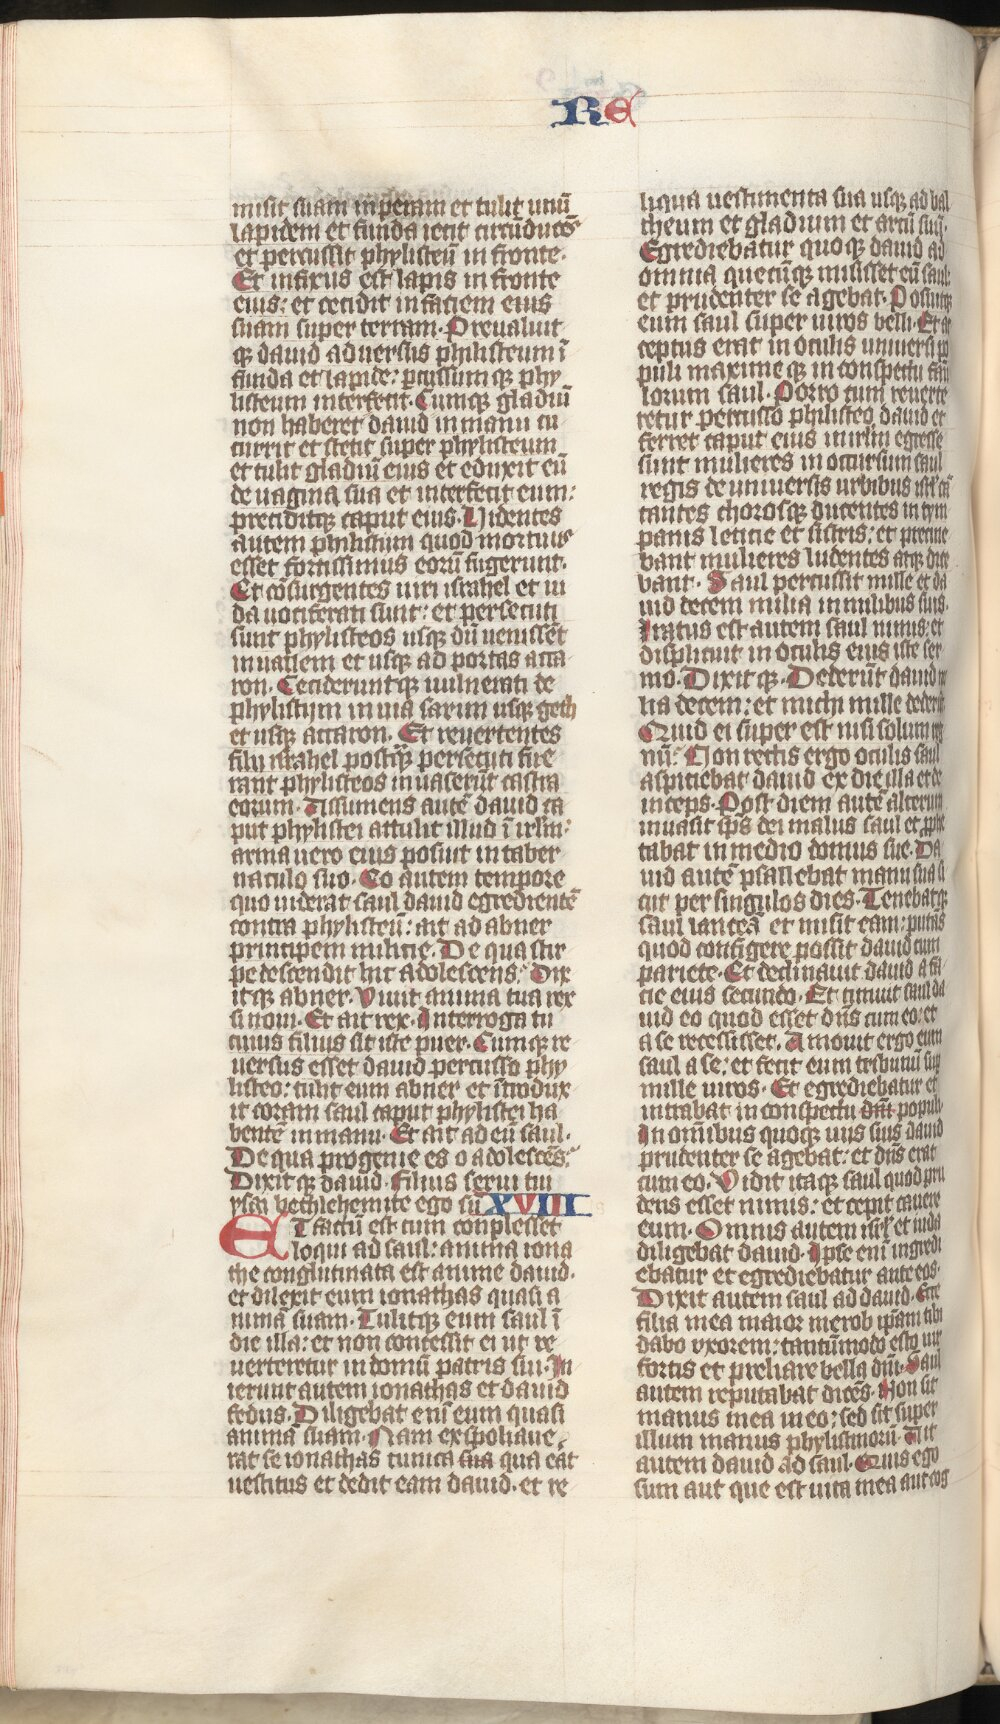 RE
misit suam in peram et tulit unū
lapidem et funda iecit circūducēs
et percussit phylisteū in fronte.
Et infixus est lapis in fronte
eius: et cecidit in faciem eius
suam super terram. Preualuit
qꝫ dauid aduersus philisteum ī
funda et lapide: pcussumqꝫ phy
listeum interfecit. Cumqꝫ gladiū
non haberet dauid in manu cu
currit et stetit super phylisteum
et tulit gladiū eius et eduxit eū
de uagina sua et interfecit eum:
preciditqꝫ caput eius. Uidentes
autem philistiim quod mortuus
esset fortissimus eorū fugerunt.
Et cōsurgentes uiri israhel et iu
da uociferati sunt: et persecuti
sunt phylisteos usqꝫ dū uenissēt
in uallem et usqꝫ ad portas acca
ron. Cecideruntqꝫ uulnerati de
phylistijm in uia sarim usqꝫ geth
et usqꝫ accaron. Et reuertentes
filii israhel postqꝫ persecuti fue
rant phylisteos inuaserūt castra
eorum. Assumens autē dauid ca
put phylistei attulit illud ī irlm:
arma uero eius posuit in taber
naculo suo. Eo autem tempore
quo uiderat saul dauid egredientē
contra phylisteū: ait ad abner
principem milicie. De qua stir
pe descendit hic adolescens. Dix
itqꝫ abner. Viuit anima tua rex
si noui. Et ait rex. Interroga tu
cuius filius sit iste puer. Cumqꝫ re
uersus esset dauid percusso phy
listeo: tulit eum abner et ītrodux
it coram saul caput phylistei ha
bentē in manu. Et ait ad eū saul.
De qua progenie es o adolescēs.
Dixitqꝫ dauid. Filius serui tui
ysai bethlehemite ego sū XVIII
ET factū est cum conplesset
loqui ad saul: anima iona
the conglutinata est anime dauid.
et dilexit eum ionathas quasi a
nimā suam. Tulitqꝫ eum saul ī
die illa: et non concessit ei ut re
uerteretur in domū patris sui. In
ierunt autem ionathas et dauid
fedus. Diligebat enī eum quasi
animā suam. Nam exspoliaue
rat se ionathas tunica sua qua eat
uestitus et dedit eam dauid. et re
liqua uestimenta sua usqꝫ ad bal
theum et gladium et arcū suū.
Egrediebatur quoqꝫ dauid ad
omnia quecūqꝫ misisset eū saul:
et prudenter se agebat. Posuitqꝫ
eum saul super uiros belli. Et ac
ceptus erat in oculis uniuersi po
puli maximeqꝫ in conspectu fam
lorum saul. Porro cum reuerte
retur percusso philisteo dauid et
ferret caput eius in irlm egresse
sunt mulieres in occursum saul
regis de uniuersis urbibus isrl cā
tantes chorosqꝫ ducentes in tym
panis leticie et sistris: et precine
bant mulieres ludentes atqꝫ dice
bant. Saul percussit mille et da
uid decem milia in milibus suis.
Iratus est autem saul nimis: et
displicuit in oculis eius iste ser
mo. Dixitqꝫ. Dederūt dauid mi
lia decem: et michi mille dederūt
Quid ei super est nisi solum reg
nū. Non rectis ergo oculis saul
aspiciebat dauid ex die illa et de
inceps. Post diem autē alterum
inuasit sps dei malus saul et pphe
tabat in medio domus sue. Da
uid autē psallebat manu sua si
cut per singulos dies. Tenebatqꝫ
saul lanceā et misit eam: putās
quod configere possit dauid cum
pariete. Et declinauit dauid a fa
cie eius secundo. Et timuit saul da
uid eo quod esset dns cum eo: et
a se recessisset. Amouit ergo eum
saul a se: et fecit eum tribunū sup
mille uiros. Et egrediebatur et
intrabat in conspectu populi
In omnibus quoqꝫ uiis suis dauid
prudenter se agebat: et dns erat
cum eo. Vidit itaqꝫ saul quod pru
dens esset nimis: et cepit cauere
eum. Omnis autem isrl et iuda
diligebat dauid. Ipse enī ingredi
ebatur et egrediebatur ante eos.
Dixit autem saul ad dauid. Ecce
filia mea maior merob ipam tibi
dabo vxorem: tantūmodo esto uir
fortis et preliare bella dni. Saul
autem reputabat dicēs. Non sit
manus mea in eo: sed sit super
illum manus phylistinorū. Ait
autem dauid ad saul. Quis ego
sum aut que est uita mea aut cog